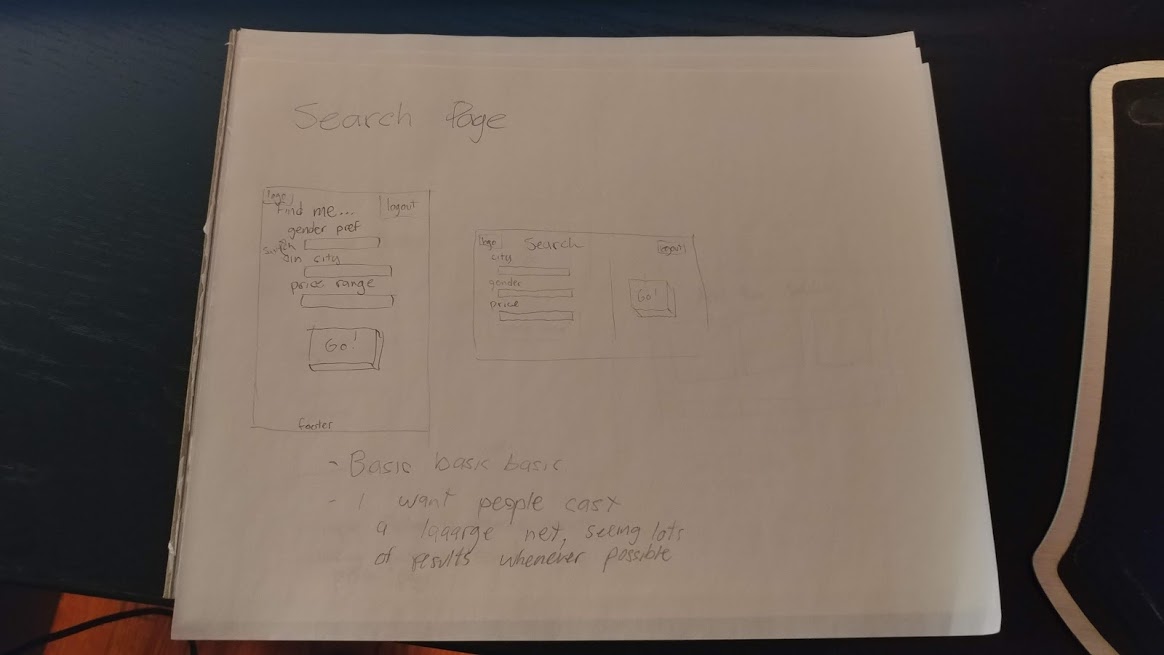 Search Page
logo
Find me...
logout
gender pref
in city
price range
Go!
footer
logo
Search
logout
city
gender
price
Go!
- Basic basic basic
- I want people cast
a laaarge net, seeing lots
of results whenever possible